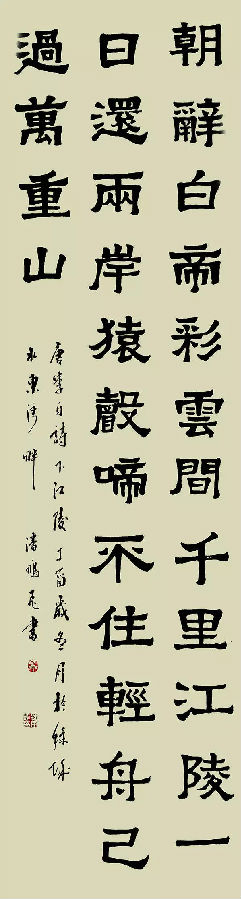 朝辭白帝彩雲間千里江陵一
日還兩岸猿聲啼不住輕舟已
過萬重山
唐李白詩下江陵丁酉歲冬月於綠城
水東畔 潘鵬飛書